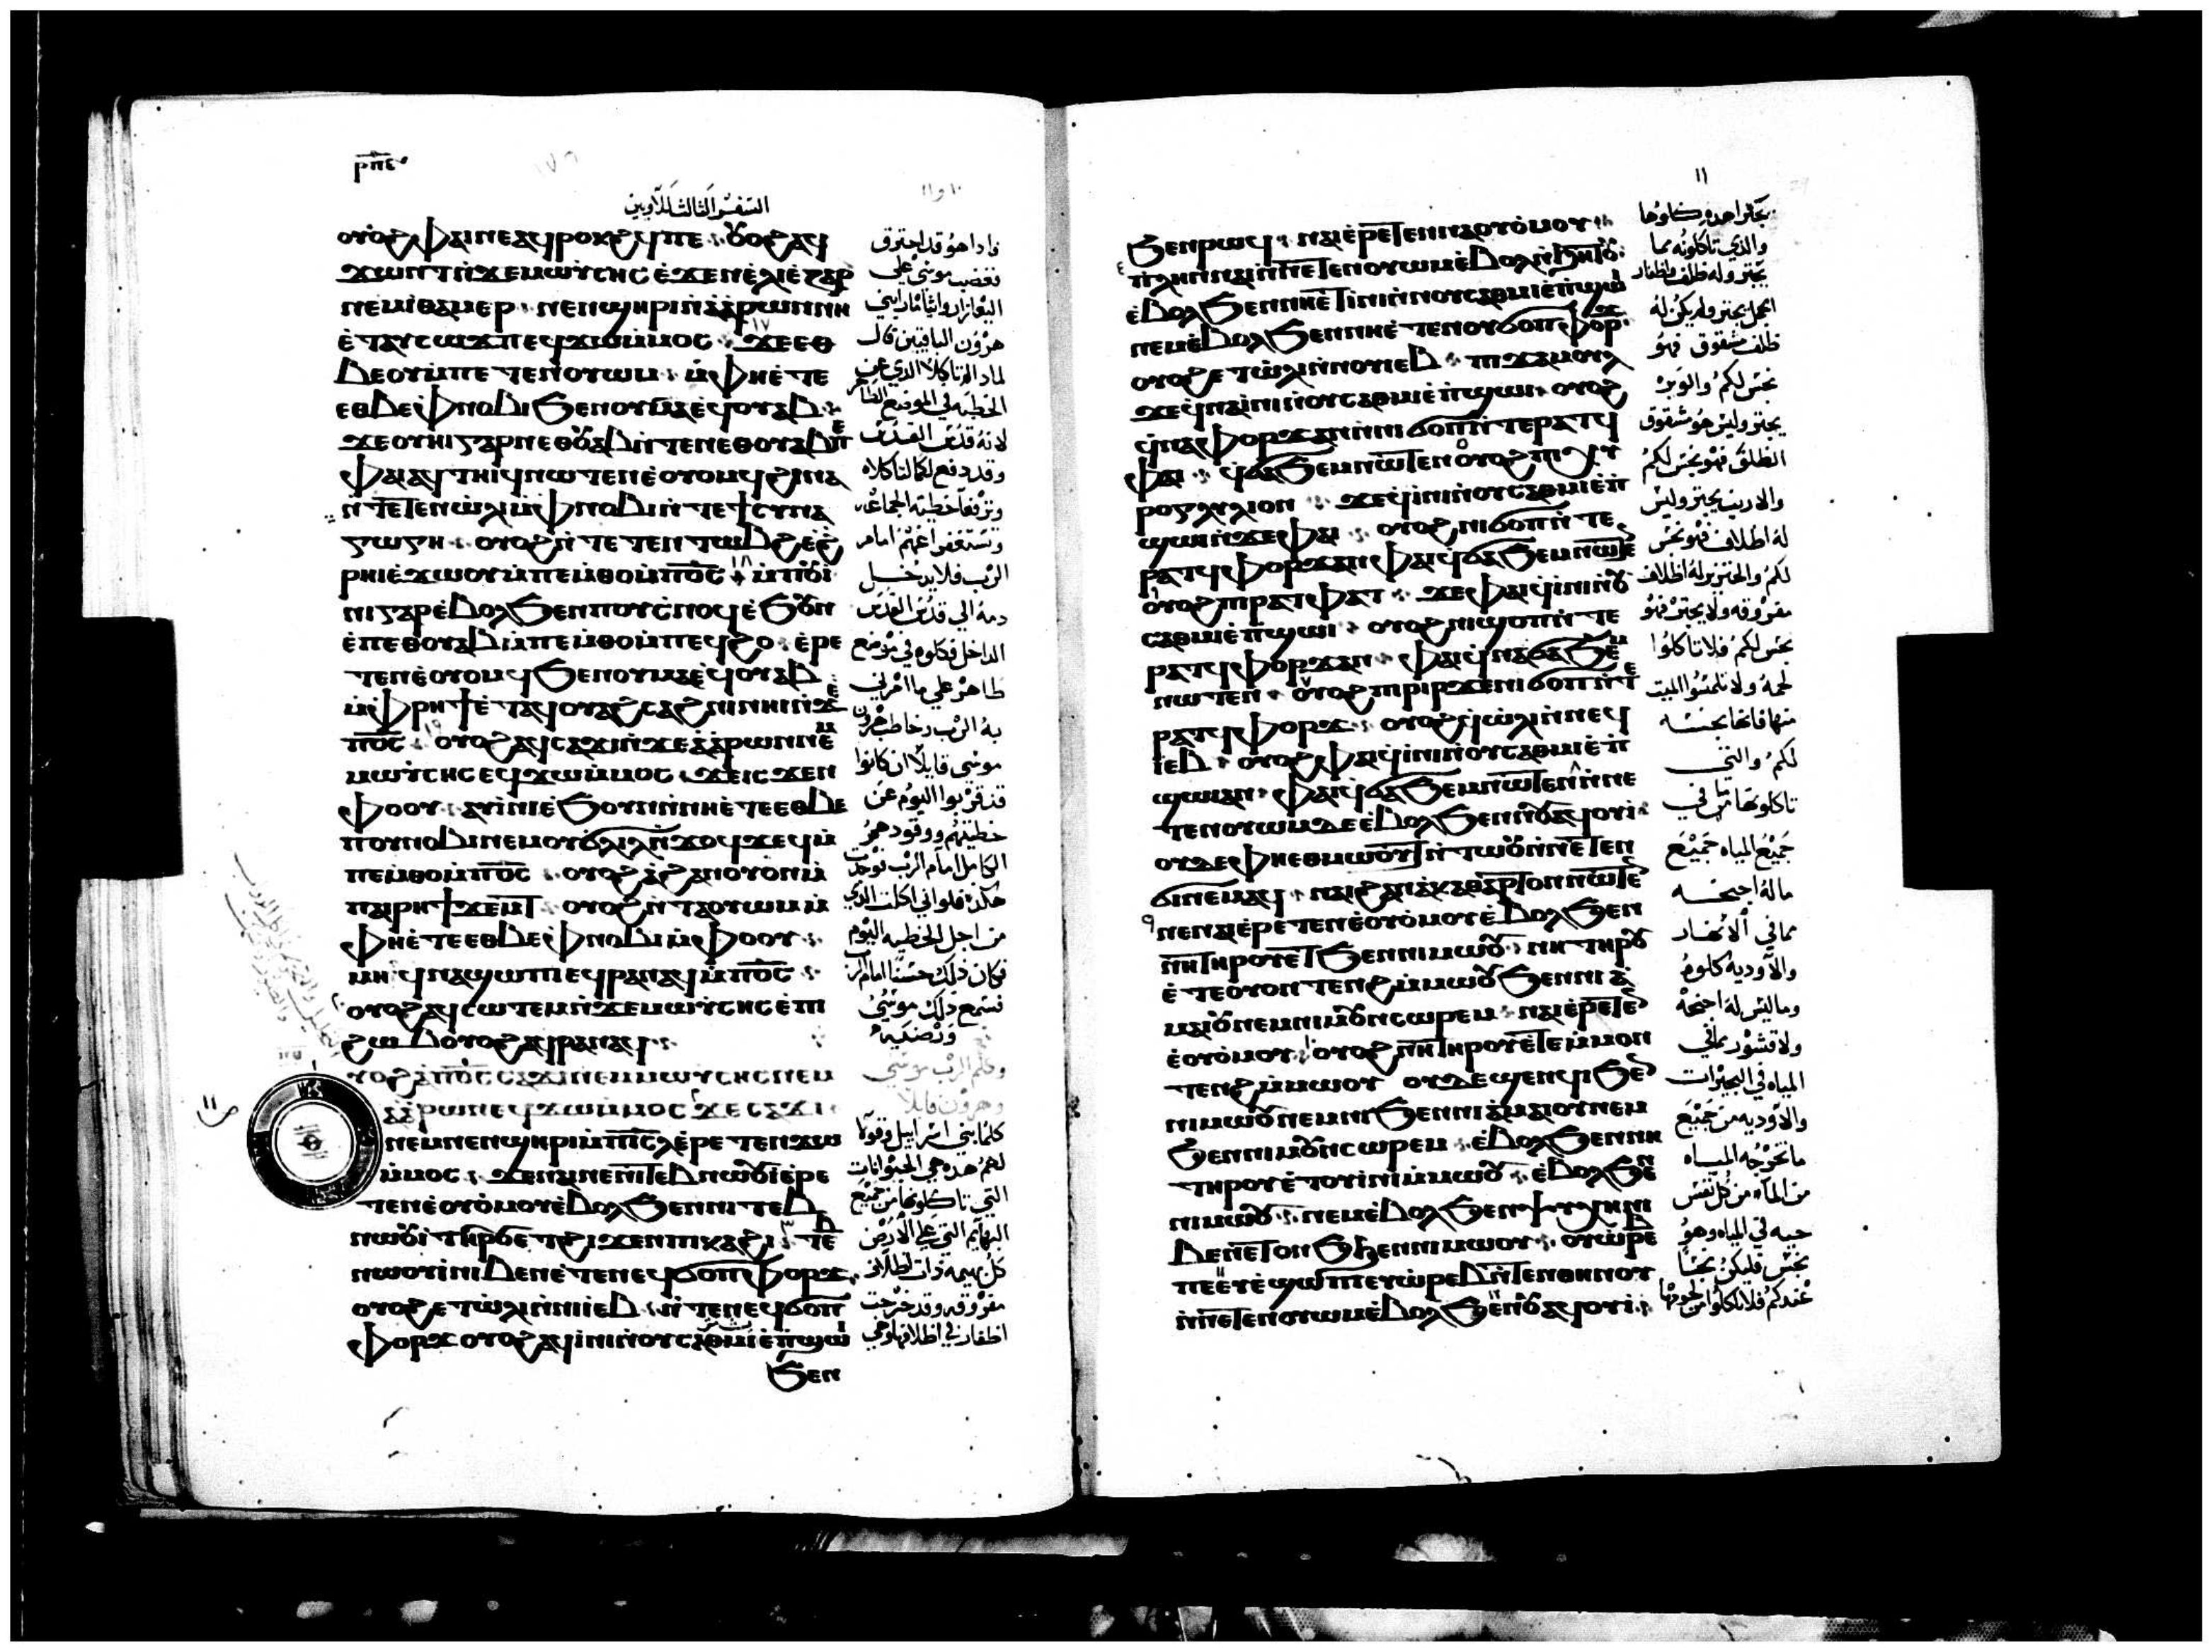 ⲣⲡⲉ
السفر الثالث للاويين
ⲟⲩⲟϩ ⲫⲁⲓ ⲛⲉⲁϥⲣⲟⲕϩϥ ⲡⲉ ⲟⲩⲟϩ ⲁϥ
ϫⲱⲛⲧ ⲛϫⲉ ⲙⲱⲩⲥⲏⲥ ⲉϫⲉⲛ ⲉⲗⲓⲉⲍⲁⲣ
ⲛⲉⲙ ⲓⲑⲁⲙⲉⲣ ⲛⲉⲛϣⲏⲣⲓ ⲛⲁⲁⲣⲱⲛ ⲛⲏ
ⲉⲧⲁⲩⲥⲱϫⲡ ⲉϥϫⲱ ⲙⲙⲟⲥ ϫⲉ ⲉⲑ
ⲃⲉⲟⲩ ⲙⲡⲉⲧⲉⲛⲟⲩⲱⲙ ⲙⲫⲏⲉⲧⲉ
ⲉⲑⲃⲉ ⲫⲛⲟⲃⲓ ϧⲉⲛ ⲟⲩⲙⲁ ⲉϥⲟⲩⲁⲃ
ϫⲉ ⲟⲩⲏⲓ ⲅⲁⲣ ⲡⲉⲑⲟⲩⲁⲃ ⲛⲧⲉ ⲛⲉⲑⲟⲩⲁⲃ ⲡⲉ
ⲫⲁⲓ ⲁϥⲧⲏⲓϥ ⲛⲱⲧⲉⲛ ⲉⲟⲩⲟⲙϥ ϩⲓⲛⲁ
ⲛⲧⲉⲧⲉⲛⲱⲗⲓ ⲙⲫⲛⲟⲃⲓ ⲛⲧⲉ ϯⲥⲩⲛⲁ
ⲅⲱⲅⲏ ⲟⲩⲟϩ ⲛⲧⲉⲧⲉⲛⲧⲱⲃϩ ⲉϩ
ⲣⲏⲓ ⲉϫⲱⲟⲩ ⲙⲡⲉⲙⲑⲟ ⲙⲡⲟⲥ ⲙⲡⲟⲩⲓ
ⲛⲓ ⲅⲁⲣ ⲉⲃⲟⲗ ϧⲉⲛ ⲡⲟⲩⲥⲛⲟϥ ⲉϧⲟⲩⲛ
ⲉⲡⲉⲑⲟⲩⲁⲃ ⲙⲡⲉⲙⲑⲟ ⲙⲡⲉϥϩⲟ ⲉⲣⲉ
ⲧⲉⲛⲉⲟⲩⲟⲙϥ ϧⲉⲛ ⲟⲩⲙⲁ ⲉϥⲟⲩⲁⲃ
ⲙⲫⲣⲏϯ ⲉⲧⲁϥⲟⲩⲁϩⲥⲁϩⲛⲓ ⲛⲏⲓ ⲛϫⲉ
ⲡⲟⲥ ⲟⲩⲟϩ ⲁϥⲥⲁϫⲓ ⲛϫⲉ ⲁⲁⲣⲱⲛ ⲛⲉⲙ
ⲙⲱⲩⲥⲏⲥ ⲉϥϫⲱ ⲙⲙⲟⲥ ϫⲉ ⲓⲥϫⲉⲛ
ⲫⲟⲟⲩ ⲁⲩⲓⲛⲓ ⲉϧⲟⲩⲛ ⲛⲛⲏⲉⲧⲉ ⲉⲑⲃⲉ
ⲡⲟⲩⲛⲟⲃⲓ ⲛⲉⲙ ⲟⲩϭⲗⲓⲗ ⲛϫⲟϥϫⲉϥ ⲙ
ⲡⲉⲙⲑⲟ ⲙⲡⲟⲥ ⲟⲩⲟϩ ⲁϩⲁⲛⲟⲩⲟⲛ ⲙ
ⲡⲁⲓⲣⲏϯ ϫⲉⲙⲧ ⲟⲩⲟϩ ⲛⲧⲁⲟⲩⲱⲙ ⲙ
ⲫⲏⲉⲧⲉ ⲉⲑⲃⲉ ⲫⲛⲟⲃⲓ ⲙⲫⲟⲟⲩ
ⲙⲏ ϥⲛⲁϣⲱⲡⲓ ⲉϥⲣⲁⲛⲁϥ ⲙⲡⲟⲥ
ⲟⲩⲟϩ ⲁϥⲥⲱⲧⲉⲙ ⲛϫⲉ ⲙⲱⲩⲥⲏⲥ ⲉⲡⲓ
ϩⲱⲃ ⲟⲩⲟϩ ⲁϥⲣⲁⲛⲁϥ
ⲩⲟϩ ⲁⲡⲟⲥ ⲥⲁϫⲓ ⲛⲉⲙ ⲙⲱⲩⲥⲏⲥ ⲛⲉⲙ
ⲁⲁⲣⲱⲛ ⲉϥϫⲱ ⲙⲙⲟⲥ ϫⲉ ⲥⲁϫⲓ
ⲛⲉⲙ ⲛⲉⲛϣⲏⲣⲓ ⲙⲡⲓⲥⲗ ⲉⲣⲉⲧⲉⲛϫⲱ
ⲙⲙⲟⲥ ϫⲉ ⲛⲁⲓ ⲛⲉ ⲛⲓⲧⲉⲃⲛⲱⲟⲩⲓ ⲉⲣⲉ
ⲧⲉⲛⲉⲟⲩⲟⲙⲟⲩ ⲉⲃⲟⲗ ϧⲉⲛ ⲛⲓⲧⲉⲃ
ⲛⲱⲟⲩⲓ ⲧⲏⲣⲟⲩ ⲉⲧϩⲓϫⲉⲛ ⲡⲓⲕⲁϩⲓ ⲧⲉⲃ
ⲛⲱⲟⲩⲓ ⲛⲓⲃⲉⲛ ⲉⲧⲉ ⲛⲉϥϭⲟⲡ ⲫⲟⲣϫ
ⲟⲩⲟϩ ⲉⲧⲱⲗⲓ ⲛⲛⲓⲉⲃ ⲛⲧⲉ ⲛⲉϥϭⲟⲡ
ⲫⲟⲣϫ ⲟⲩⲟϩ ⲁϥⲓⲛⲓ ⲛⲟⲩⲥⲁⲑⲙⲓ ⲉⲡϣⲱⲓ
ϧⲉⲛ
واذا هو قد احترق
فغضب موسى على
هرون الباقيين قال
لماذا لم تاكلا الذي عن
الخطيه في الموضع الطاهر
لانه قدس القدس
وقد دفع لكما لتاكلاه
وترفعا خطية الجماعه
وتستغفرا عنهم امام
الرب فلا يدخل
دمه الى قدس القدس
الداخل فكلوه في موضع
طاهر على ما امرني
به الرب وخاطب هرون
موسى قايلا ان كانوا
قد قربوا اليوم عن
خطيتهم ووقود
الكامل امام الرب
هكذا فلو اني اكلت الذي
من اجل الخطيه اليوم
فكان ذلك حسنا امام الرب
فسمع ذلك موسى
وارضيه
وكلم الرب موسى
وهرون قايلا
كلما بني اسراييل وقولا
لهم هذه هي الحيوانات
التي تاكلونها من جميع
البهايم التي على الارض
كل بهيمه ذات اظلاف
مفروقه وقد خرجت
اظفار في اظلافها وهي
١١
ϧⲉⲛ ⲣⲱϥ ⲛⲁⲓ ⲉⲣⲉⲧⲉⲛⲛⲁⲟⲩⲟⲙⲟⲩ
ⲡⲗⲏⲛ ⲛⲁⲓ ⲛⲛⲉⲧⲉⲛⲟⲩⲱⲙ ⲉⲃⲟⲗ ⲛϧⲏⲧⲟⲩ
ⲉⲃⲟⲗ ϧⲉⲛ ⲛⲏⲉⲧⲓⲛⲓ ⲛⲟⲩⲥⲁⲑⲙⲓ ⲉⲡϣⲱⲓ
ⲛⲉⲙ ⲉⲃⲟⲗ ϧⲉⲛ ⲛⲏⲉⲧⲉ ⲛⲟⲩϭⲟⲡ ⲫⲟⲣϫ
ⲟⲩⲟϩ ⲉⲧⲱⲗⲓ ⲛⲛⲟⲩⲓⲉⲃ ⲡⲓϫⲁⲙⲟⲩⲗ
ϫⲉ ϥⲛⲁⲓⲛⲓ ⲛⲟⲩⲥⲁⲑⲙⲓ ⲉⲡϣⲱⲓ ⲟⲩⲟϩ
ϥⲛⲁⲫⲟⲣϫ ⲁⲛ ⲛⲛⲓϭⲟⲡ ⲛⲧⲉ ⲣⲁⲧϥ
ⲫⲁⲓ ϥϭⲁϧⲉⲙ ⲛⲱⲧⲉⲛ ⲟⲩⲟϩ ⲡⲓⲭⲩ
ⲣⲟⲅⲗⲗⲓⲟⲛ ϫⲉ ϥⲓⲛⲓ ⲛⲟⲩⲥⲁⲑⲙⲓ ⲉⲡ
ϣⲱⲓ ⲛϫⲉ ⲫⲁⲓ ⲟⲩⲟϩ ⲛⲓϭⲟⲡ ⲛⲧⲉ
ⲣⲁⲧϥ ⲫⲟⲣϫ ⲁⲛ ⲫⲁⲓ ϥϭⲁϧⲉⲙ ⲛⲱⲧⲉⲛ
ⲟⲩⲟϩ ⲡⲓⲣⲁⲧⲫⲁⲧ ϫⲉ ⲫⲁⲓ ϥⲓⲛⲓ ⲛⲟⲩ
ⲥⲁⲑⲙⲓ ⲉⲡϣⲱⲓ ⲟⲩⲟϩ ⲛⲓϣⲟⲡ ⲛⲧⲉ
ⲣⲁⲧϥ ⲫⲟⲣϫ ⲁⲛ ⲫⲁⲓ ϥⲛⲁϭⲁϧⲉⲙ
ⲛⲱⲧⲉⲛ ⲟⲩⲟϩ ⲡⲓⲣⲓⲣ ϫⲉ ⲛⲓϭⲟⲡ ⲛⲧⲉ
ⲣⲁⲧϥ ⲫⲟⲣϫ ⲟⲩⲟϩ ϥⲱⲗⲓ ⲛⲛⲉϥ
ⲓⲉⲃ ⲟⲩⲟϩ ⲫⲁⲓ ϥⲓⲛⲓ ⲛⲟⲩⲥⲁⲑⲙⲓ ⲉⲡ
ϣⲱⲓ ⲁⲛ ⲫⲁⲓ ϥϭⲁϧⲉⲙ ⲛⲱⲧⲉⲛ ⲛⲛⲉ
ⲧⲉⲛⲟⲩⲱⲙ ⲇⲉ ⲉⲃⲟⲗ ϧⲉⲛ ⲛⲟⲩⲁϥⲟⲩⲓ
ⲟⲩⲇⲉ ⲫⲏⲉⲑⲙⲱⲟⲩⲧ ⲛⲧⲱⲟⲩ ⲛⲛⲉⲧⲉⲛ
ϭⲓⲛⲉⲙⲁϥ ⲛⲁⲓ ϩⲁⲛⲁⲕⲁⲑⲁⲣⲧⲟⲛ ⲛⲱⲧⲉⲛ
ⲛⲉ ⲛⲁⲓ ⲉⲣⲉⲧⲉⲛⲉⲟⲩⲟⲙⲟⲩ ⲉⲃⲟⲗ ϧⲉⲛ
ⲛⲏ ⲧⲏⲣⲟⲩ ⲉⲧ ϧⲉⲛ ⲛⲓⲙⲱⲟⲩ ⲛⲏ ⲧⲏⲣⲟⲩ
ⲉⲧⲉ ⲟⲩⲟⲛ ⲧⲉⲛϩ ⲙⲙⲱⲟⲩ ϧⲉⲛ ⲛⲓⲁ
ⲙⲁⲓⲟⲩ ⲛⲉⲙ ⲛⲓⲙⲟⲩⲛⲥⲱⲣⲉⲙ ⲛⲁⲓ ⲉⲣⲉⲧⲉⲛ
ⲉⲟⲩⲟⲙⲟⲩ ⲟⲩⲟϩ ⲛⲏ ⲧⲏⲣⲟⲩ ⲉⲧⲉ ⲙⲙⲟⲛ
ⲧⲉⲛϩ ⲙⲙⲱⲟⲩ ⲟⲩⲇⲉ ϣⲉⲛϥⲓ ϧⲉⲛ
ⲛⲓⲙⲱⲟⲩ ⲛⲉⲙ ⲛⲏ ϧⲉⲛ ⲛⲓⲁⲙⲁⲓⲟⲩ ⲛⲉⲙ
ϧⲉⲛ ⲛⲓⲙⲟⲩⲛⲥⲱⲣⲉⲙ ⲉⲃⲟⲗ ϧⲉⲛ ⲛⲏ
ⲧⲏⲣⲟⲩ ⲉⲧⲟⲩⲓⲛⲓ ⲙⲙⲱⲟⲩ ⲉⲃⲟⲗ ϧⲉⲛ
ⲛⲓⲙⲱⲟⲩ ⲛⲉⲙ ⲉⲃⲟⲗ ϧⲉⲛ ⲯⲩⲭⲏ ⲛⲓ
ⲃⲉⲛ ⲉⲧⲟⲛϧ ϧⲉⲛ ⲛⲓⲙⲱⲟⲩ ⲟⲩⲱⲣⲉⲃ
ⲡⲉ ⲉⲩⲉϣⲱⲡⲓ ⲉⲩⲱⲣⲉⲃ ⲛⲧⲉⲛ ⲑⲏⲛⲟⲩ
ⲛⲛⲉⲧⲉⲛⲟⲩⲱⲙ ⲉⲃⲟⲗ ϧⲉⲛ ⲛⲟⲩⲁϥⲟⲩⲓ
والذي تاكلونه مما
يجتر وله ظلف واظفار
الجمل يجتر ولم يكن له
ظلف مشقوق فهو
نجس لكم والوبر
يجتر وليس هو مشقوق
الظلف فهو نجس لكم
والارنب يجتر وليس
له اظلاف فهو نجس
لكم والخنزير له اظلاف
مفروقه ولا يجتر فهو
نجس لكم فلا تاكلوا
لحمه ولا تلمسوا الميت
منها فانها نجسه
لكم والتي
تاكلونها مما في
جميع المياه جميع
ما له اجنحه
مما في الانهار
والاوديه كلوه
وما ليس له اجنحه
ولا قشور مما في
المياه في البحيرات
والاوديه من جميع
ما تخرجه المياه
من الماء من كل نفس
حيه في المياه وهو
نجس فليكن نجسا
عندكم فلا تاكلوا من لحومها